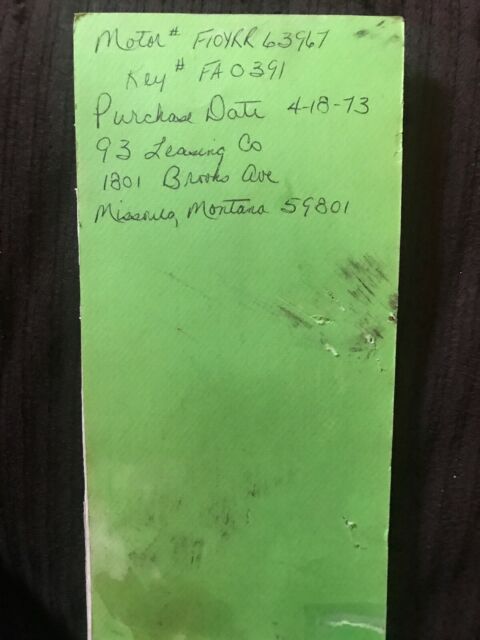 Motor # F10YRR63967
Key # FA0391
Purchase Date 4-18-73
93 Leasing Co
1801 Brooks Ave
Missoula, Montana 59801